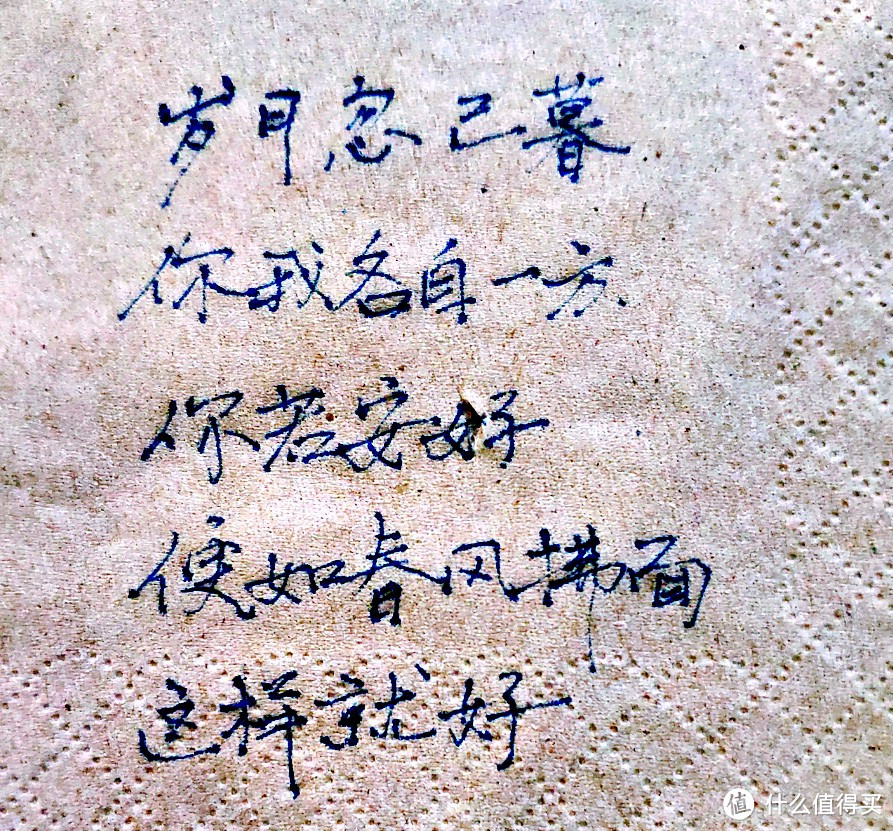 岁月忽已暮
你我各自一方
你若安好
便如春风拂面
这样就好
值 什么值得买